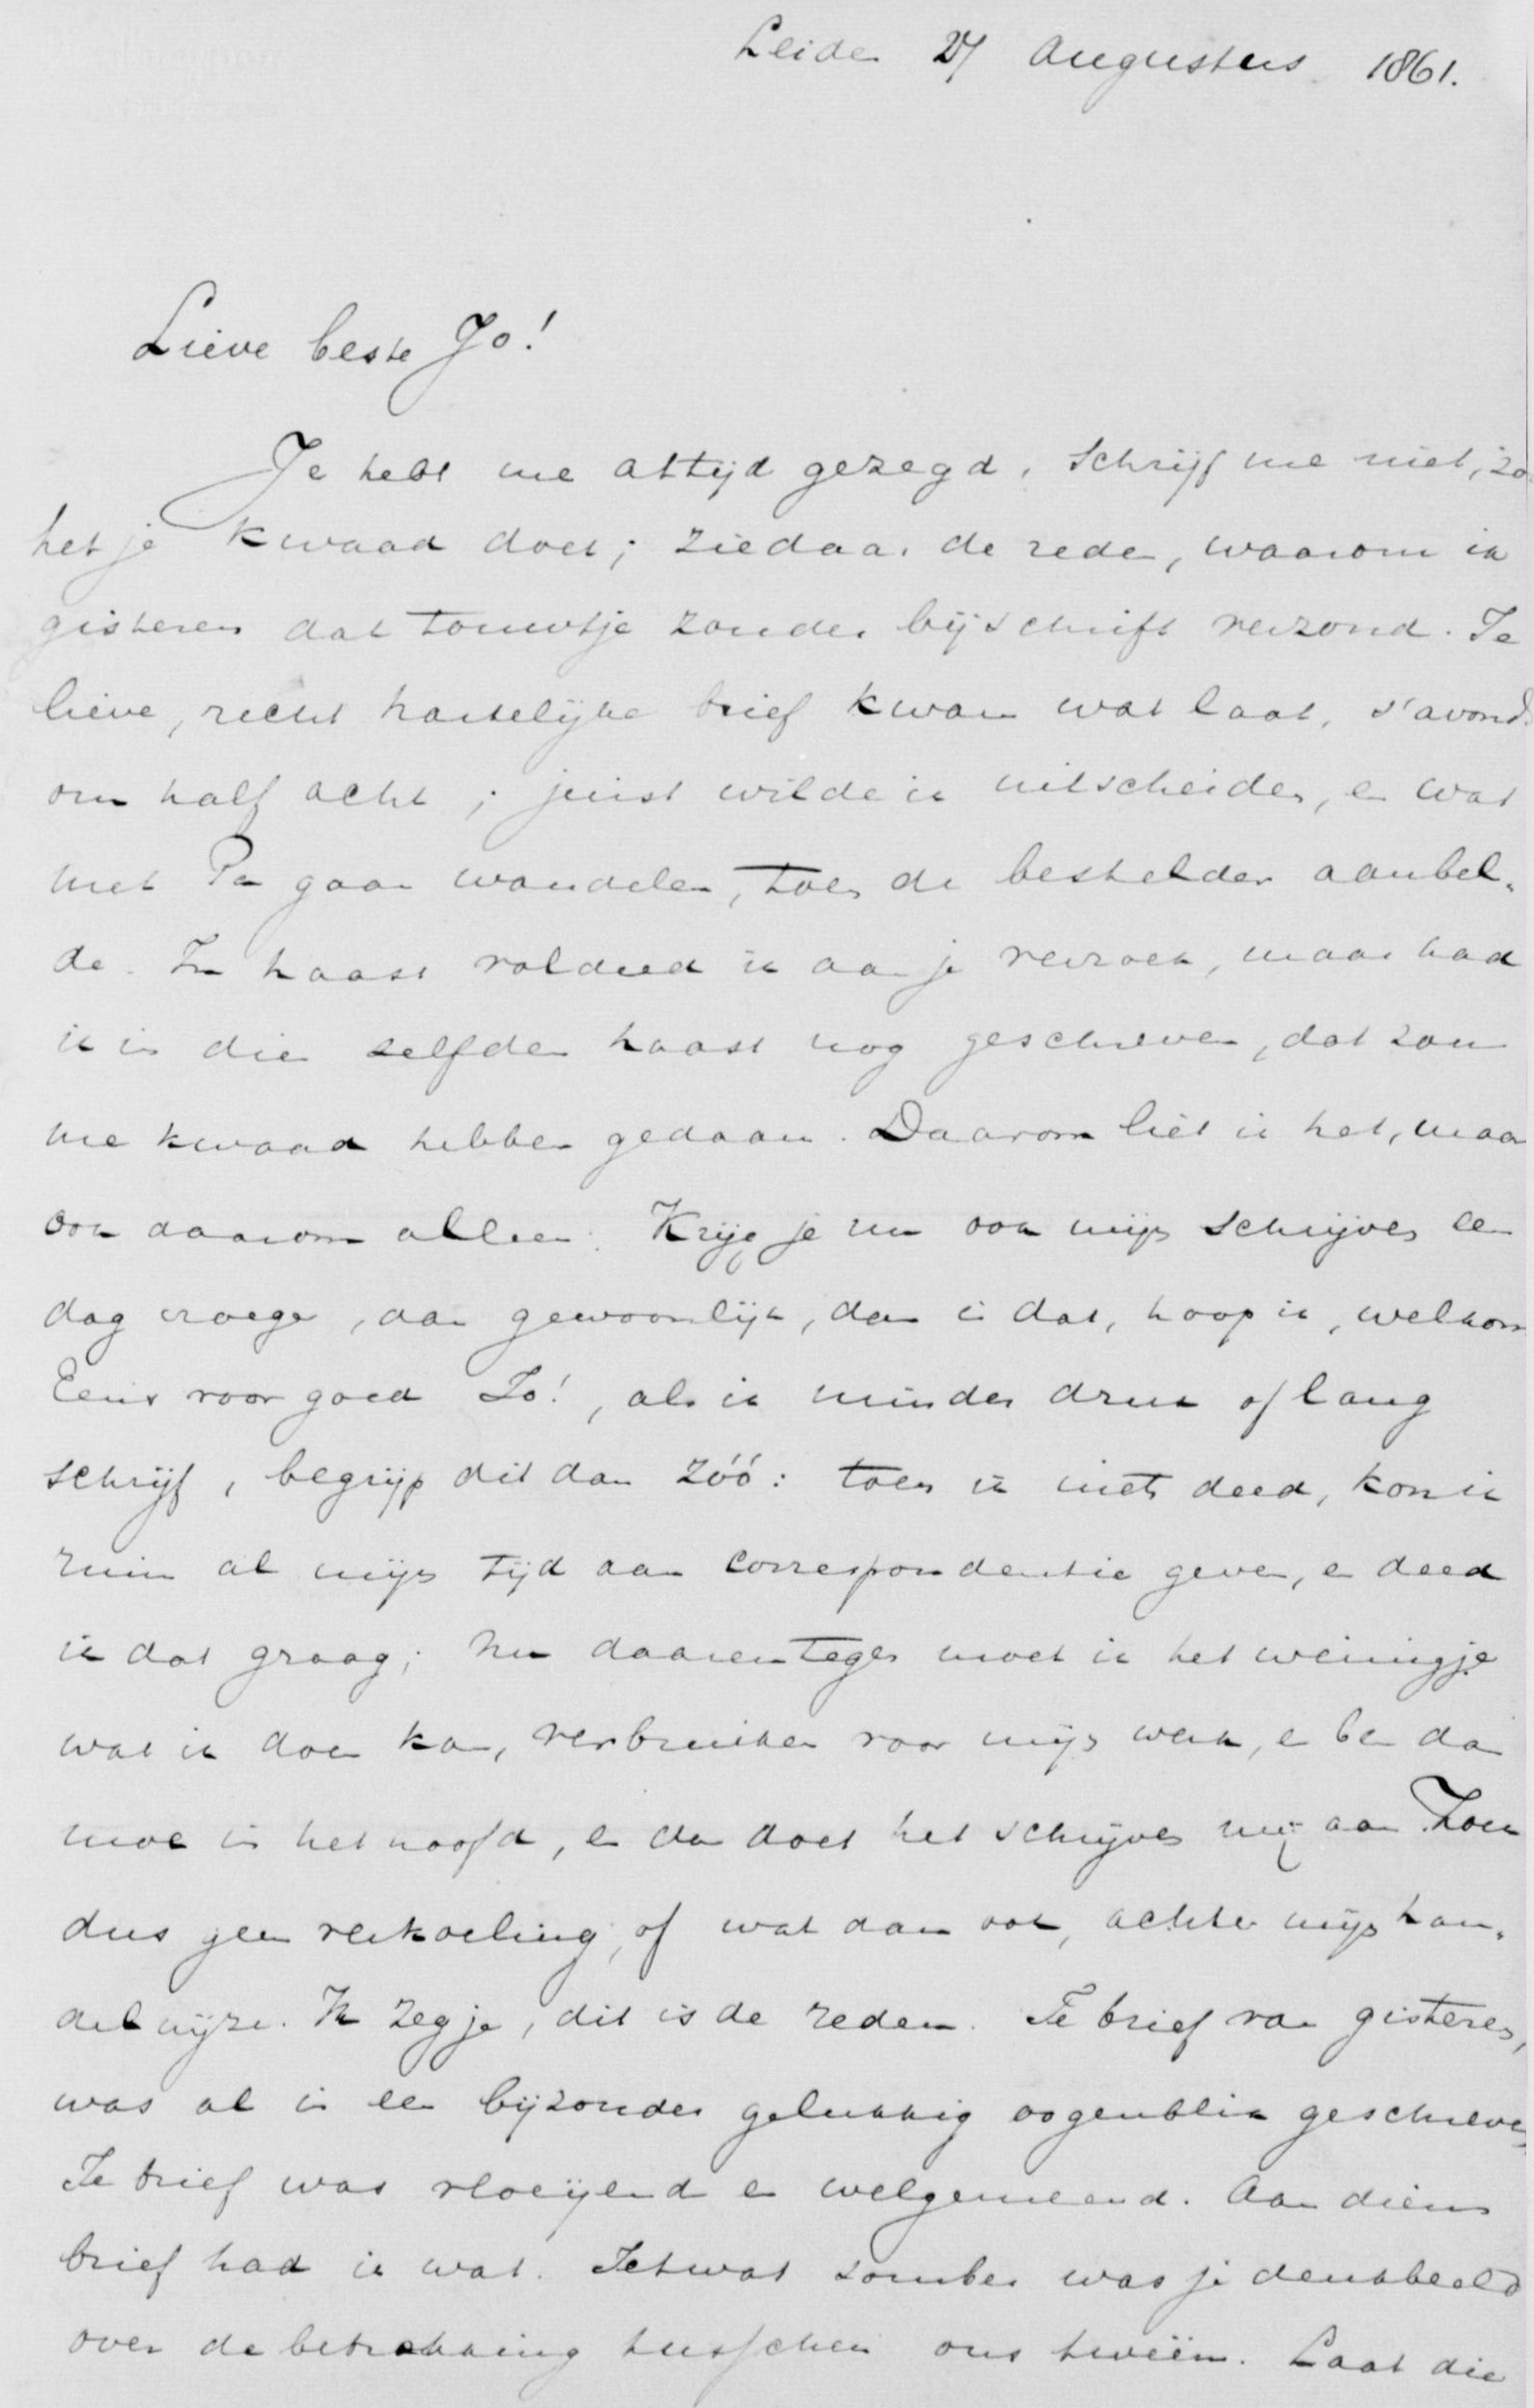 Leiden 27 Augustus 1861.
Lieve beste Jo!
Je hebt me altijd gezegd, schrijf me niet, zo
het je kwaad doet; ziedaar de reden, waarom ik
gisteren dat touwtje zonder bijschrift verzond. Je
lieve, recht hartelijke brief kwam wat laat, s'avonds
om half acht; juist wilde ik uitscheiden, en wat
met Pa gaan wandelen, toen de bestelder aanbel-
de. In haast voldeed ik aan je verzoek, maar had
ik in die zelfden haast nog geschreven, dat zou
me kwaad hebben gedaan. Daarom liet ik het, maar
ook daarom alleen. Krijg je nu ook mijn schrijven een
dag vroeger, dan gewoonlijk, dan is dat, hoop ik, welkom
Eens voor goed Jo!, als ik minder druk of lang
schrijf, begrijp dit dan zóó: toen ik niets deed, kon ik
ruim al mijn tijd aan correspondentie geven, en deed
ik dat graag; nu daarentegen moet ik het weinigje
wat ik doen kan, verbruiken voor mijn werk, en ben dan
moe in het hoofd, en dan doet het schrijven mij aan. Zoek
dus geen verkoeling, of wat dan ook, achter mijn han-
delwijze. Ik zeg je, dit is de reden. Je brief van gisteren,
was al in een bijzonder gelukkig oogenblik geschreven
Je brief was vloeijend en welgemeend. Aan dien
brief had ik wat. Ietwat somber was je denkbeeld
over de betrekking tusschen ons tweeën. Laat die